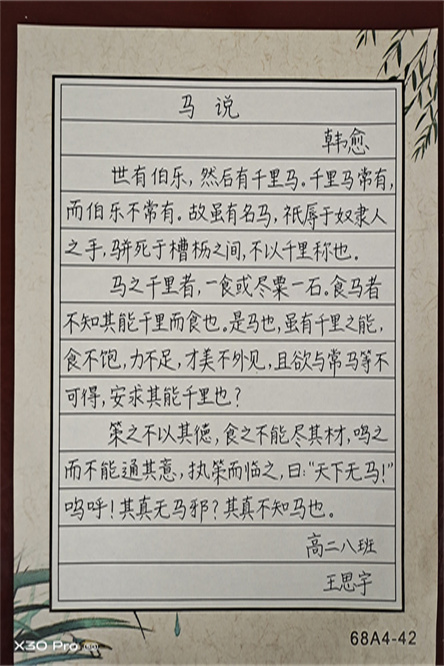 马说
韩愈
世有伯乐，然后有千里马。千里马常有，
而伯乐不常有。故虽有名马，祇辱于奴隶人
之手，骈死于槽枥之间，不以千里称也。
马之千里者，一食或尽粟一石。食马者
不知其能千里而食也。是马也，虽有千里之能，
食不饱，力不足，才美不外见，且欲与常马等不
可得，安求其能千里也？
策之不以其德，食之不能尽其材，鸣之
而不能通其意，执策而临之，曰：“天下无马！”
呜呼！其真无马邪？其真不知马也。
高二八班
王思宇
X30 Pro
68A4-42